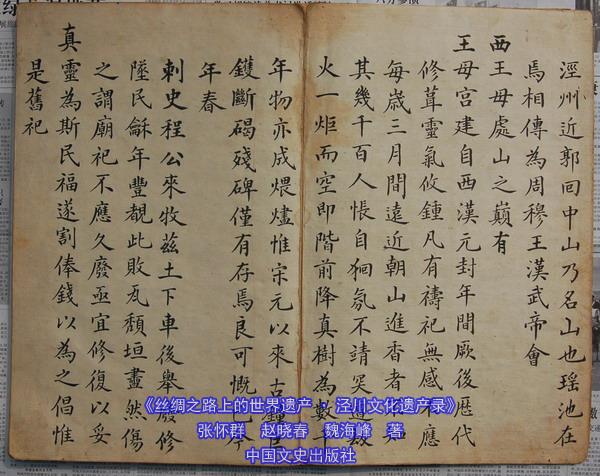 涇州近郭回中山乃名山也瑤池在
焉相傳為周穆王漢武帝會
西王母處山之巔有
王母宮建自西漢元封年間厥後歷代
修葺靈氣攸鍾凡有禱祀無感不應
每歲三月間遠近朝山進香者
其幾千百人悵自狪氛不靖突
火一炬而空即階前降真樹為數千
年物亦成煨燼惟宋元以來古鐘
鑊斷碣殘碑僅有存焉良可慨
年春
刺史程公來牧茲土下車後舉廢修
墜民龢年豐覩此敗瓦頹垣盡然傷
之謂廟祀不應久廢亟宜修復以妥
真靈為斯民福遂割俸錢以為之倡惟
是舊祀
《丝绸之路上的世界遗产·泾川文化遗产录》
张怀群 赵晓春 魏海峰 著
中国文史出版社